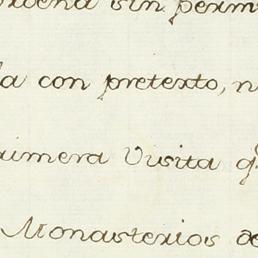 ordena sin permi
la con pretexto, n
rimera Visita q.
Monasterios de